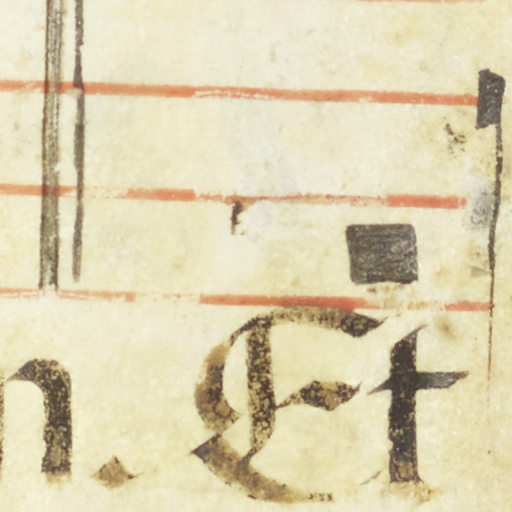 n. Et